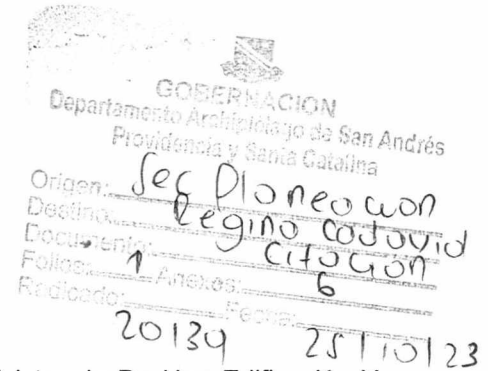 GOBERNACION
Departamento Archipiélago de San Andrés
Providencia y Santa Catalina
Origen: Sec Planeacion
Destino: Regino
Documento: Citación
Folios: 1 Anexos: 6
Radicado: 20139 Fecha: 25/10/23